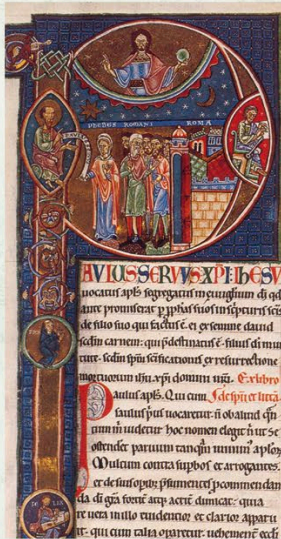 PHEBES ROMANI ROMA
AVLUS SERVVS XPI IHESV
uocatus apls segregatus in euuglium di qd
ante promiserat p pphas suos in scpturis scis
de filio suo qui factus e ei ex semine dauid
scdm carnem qui pdestinatus e filius di in uir
tute scdm spm scificationis ex resurrectione
mortuorum ihu xpi domini nri Ex libro
Paulus apls Qui cum de spu et littera
saulus pus uocaretur n ob aliud qn
tum m uidetur hoc nomen elegit n ut se
ostenderet paruum tanqm minimum aplorum
Multum contra supbos et arrogantes
et de suis opibus psumentes pcommendan
da di gra fortit atq acrit dimicat quia
uera in illo euidentior et clarior apparu
it qui cum talia opraretur uehement eccl